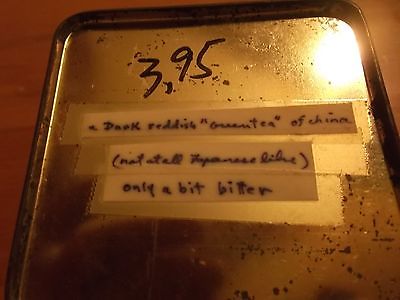 3,95
a Dark reddish "Green tea" of china
(not atall Japanese like)
only a bit bitter